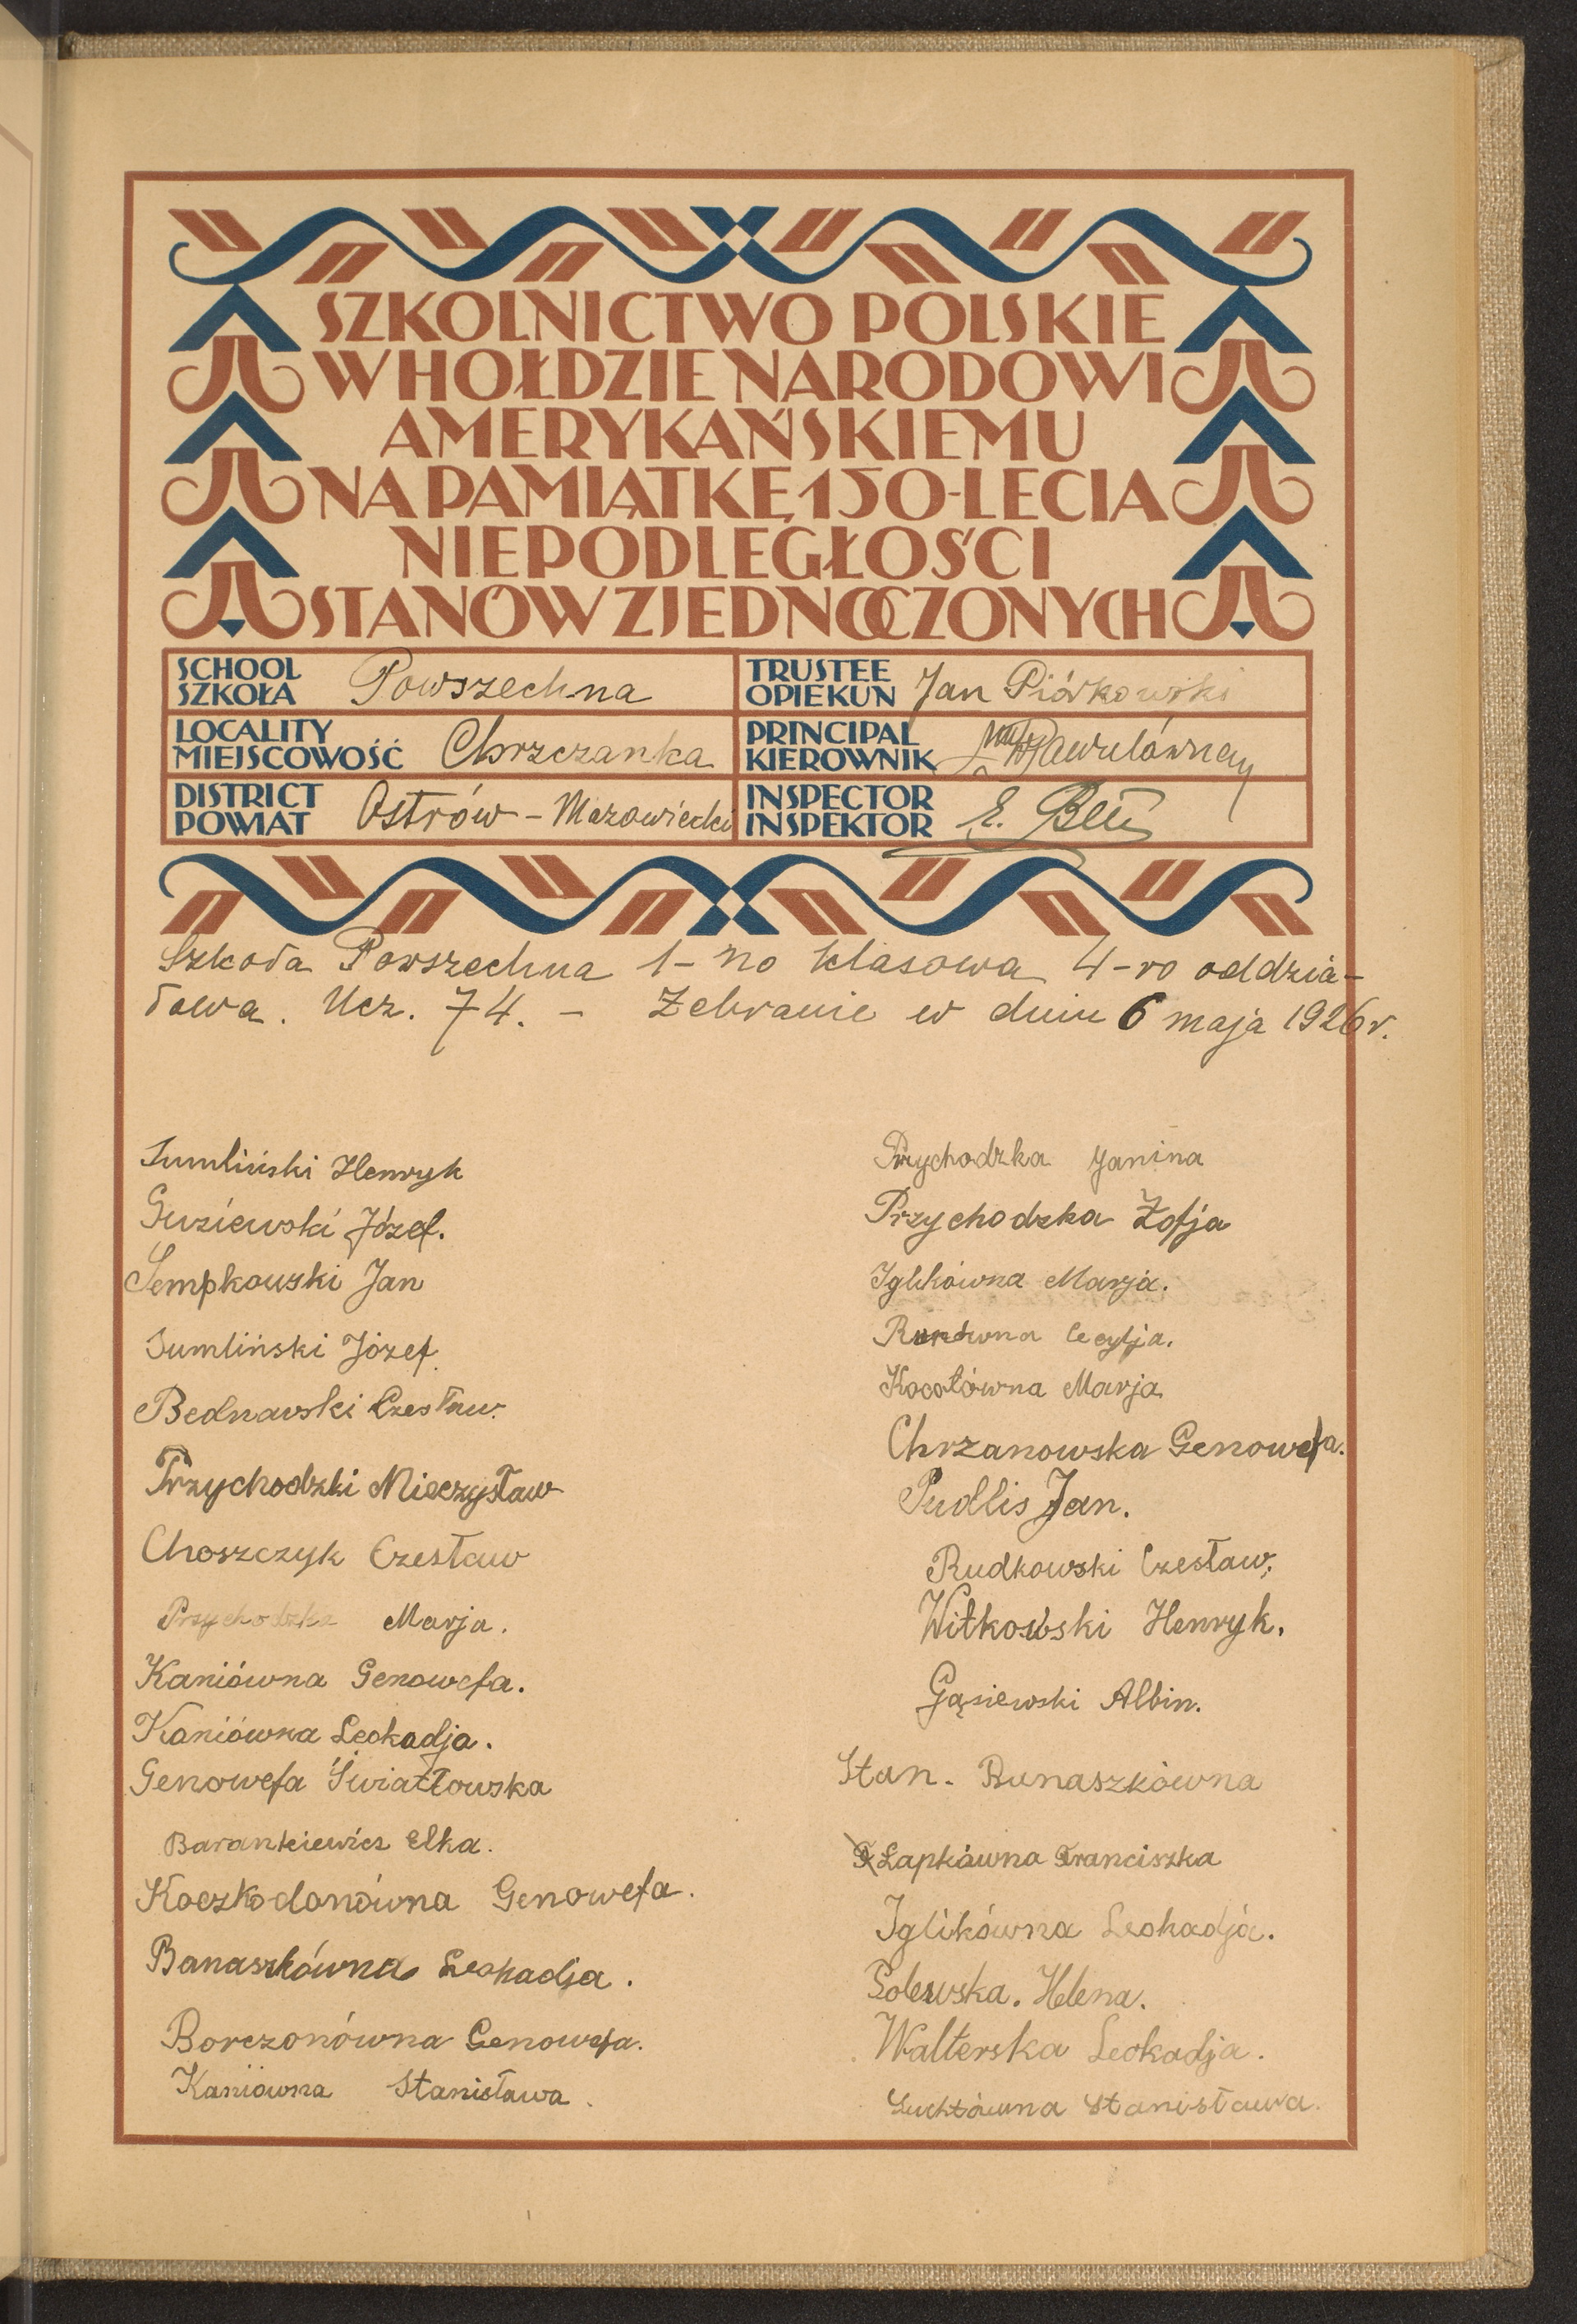 SZKOLNICTWO POLSKIE
W HOŁDZIE NARODOWI
AMERYKAŃSKIEMU
NA PAMIĄTKĘ 150-LECIA
NIEPODLEGŁOŚCI
STANÓW ZJEDNOCZONYCH
SCHOOL
SZKOŁA Powszechna
TRUSTEE
OPIEKUN Jan Piórkowski
LOCALITY
MIEJSCOWOŚĆ Chrzczanka
PRINCIPAL
KIEROWNIK
DISTRICT
POWIAT Ostrów - Mazowiecki
INSPECTOR
INSPEKTOR E.
Szkoła Powszechna 1-no klasowa 4-ro oddzia-
łowa. Ucz. 74. - Zebranie w dniu 6 maja 1926 r.
Sumliński Henryk
Guziewski Józef.
Sempkowski Jan
Sumliński Józef.
Bednarski Czesław.
Przychodzki Mieczysław
Choszczyk Czesław
Przychodzka Marja.
Kaniówna Genowefa.
Kaniówna Leokadja.
Genowefa Światłowska
Barankiewicz Elka.
Koczkodonówna Genowefa.
Banaszkówna Leokadja.
Borczonówna Genowefa.
Kaniówna Stanisława.
Przychodzka Janina
Przychodzka Zofja
Iglikówna Marja.
Cecylja.
Kocotówna Marja
Chrzanowska Genowefa.
Pudlis Jan.
Rudkowski Czesław.
Witkowski Henryk.
Gąsiewski Albin.
Stan. Bunaszkówna
Łapkówna Franciszka
Iglikówna Leokadja.
Helena.
Walterska Leokadja.
Stanisława.